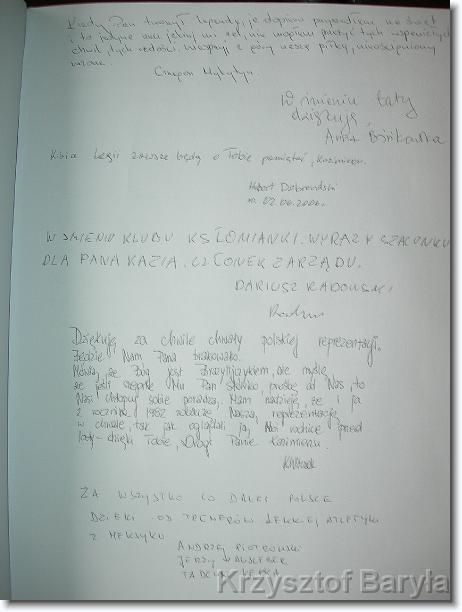 Kiedy Pan tworzył legendy, ja dopiero przyszedłem na świat
i to jedyne ale, nie mogłem przeżyć tych wspaniałych
chwil, tych radości.
W imieniu taty
dziękuję,
Anna
Kibice Legii zawsze będą o Tobie pamiętać, Kazimierz.
Hubert Dobrowolski
W IMIENIU KLUBU KS ŁOMIANKI. WYRAZY SZACUNKU
DLA PANA KAZIA. CZŁONEK ZARZĄDU.
DARIUSZ RADOMSKI
Dziękuję za chwile chwały polskiej reprezentacji.
Będzie Nam Pana brakowało.
Mówią, że Bóg jest Brazylijczykiem, ale myślę,
że jeśli szepnie Mu Pan słówko, prosbę od Nas, to
Nasi chłopcy sobie poradzą. Mam nadzieję, że i ja
z rocznika 1982 zobaczę Naszą reprezentację
w chwale, tak jak oglądali ją Moi rodzice przed
laty - dzięki Tobie, Drogi Panie Kazimierzu.
ZA WSZYSTKO CO DAŁEŚ POLSCE
DZIĘKI OD TRENERÓW LEKKIEJ ATLETYKI
Z MEKSYKU
ANDRZEJ PIOTROWSKI
JERZY HAUSLEBER
TADEUSZ KĘPKA
Krzysztof Baryła